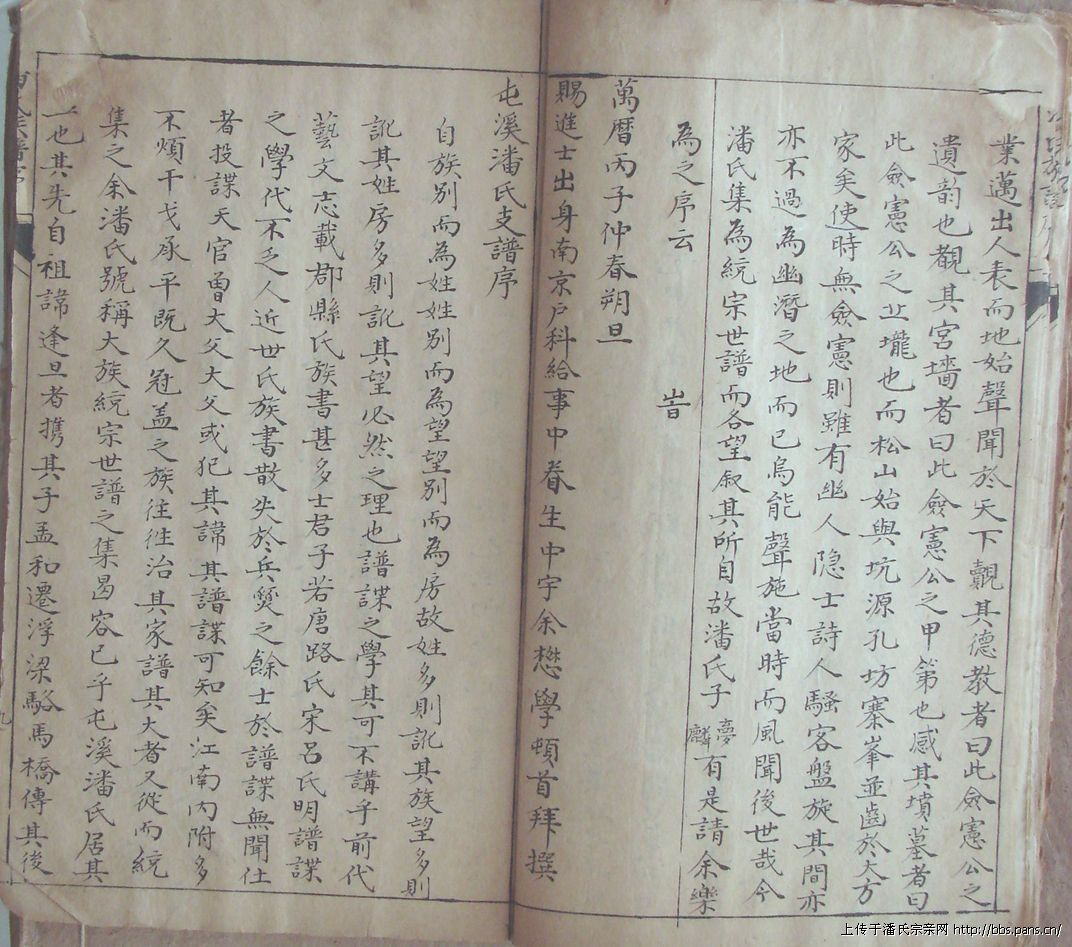 業邁出人表而地始聲聞於天下覿其德教者曰此僉憲公之
遺韵也觀其宮墻者曰此僉憲公之甲第也感其墳墓者曰
此僉憲公之丠壠也而松山始與坑源孔坊寨峯並齒於大方
家矣使時無僉憲則雖有幽人隐士詩人騷客盤旋其間亦
亦不過為幽潛之地而已烏能聲施當時而風聞後世哉今
潘氏集為統宗世譜而各望叙其所自故潘氏子夢麟有是請余樂
為之序云 旹
萬曆丙子仲春朔旦
賜進士出身南京户科給事中眷生中宇余懋學頓首拜撰
屯溪潘氏支譜序
自族别而為姓姓别而為望望别而為房故姓多則訛其族望多則
訛其姓房多則訛其望必然之理也譜諜之學其可不講乎前代
藝文志載郡縣氏族書甚多士君子若唐路氏宋呂氏明譜諜
之學代不乏人近世氏族書散失於兵燹之餘士於譜諜無聞仕
者投諜天官曾大父大父或犯其諱其譜諜可知矣江南内附多
不煩干戈承平既久冠盖之族往徃治其家譜其大者又從而統
集之余潘氏號稱大族統宗世譜之集曷容已乎屯溪潘氏居其
一也其先自祖諱逢旦者携其子孟和遷浮梁駱馬橋傳其後
上传于潘氏宗亲网 http://bbs.pans.cn/